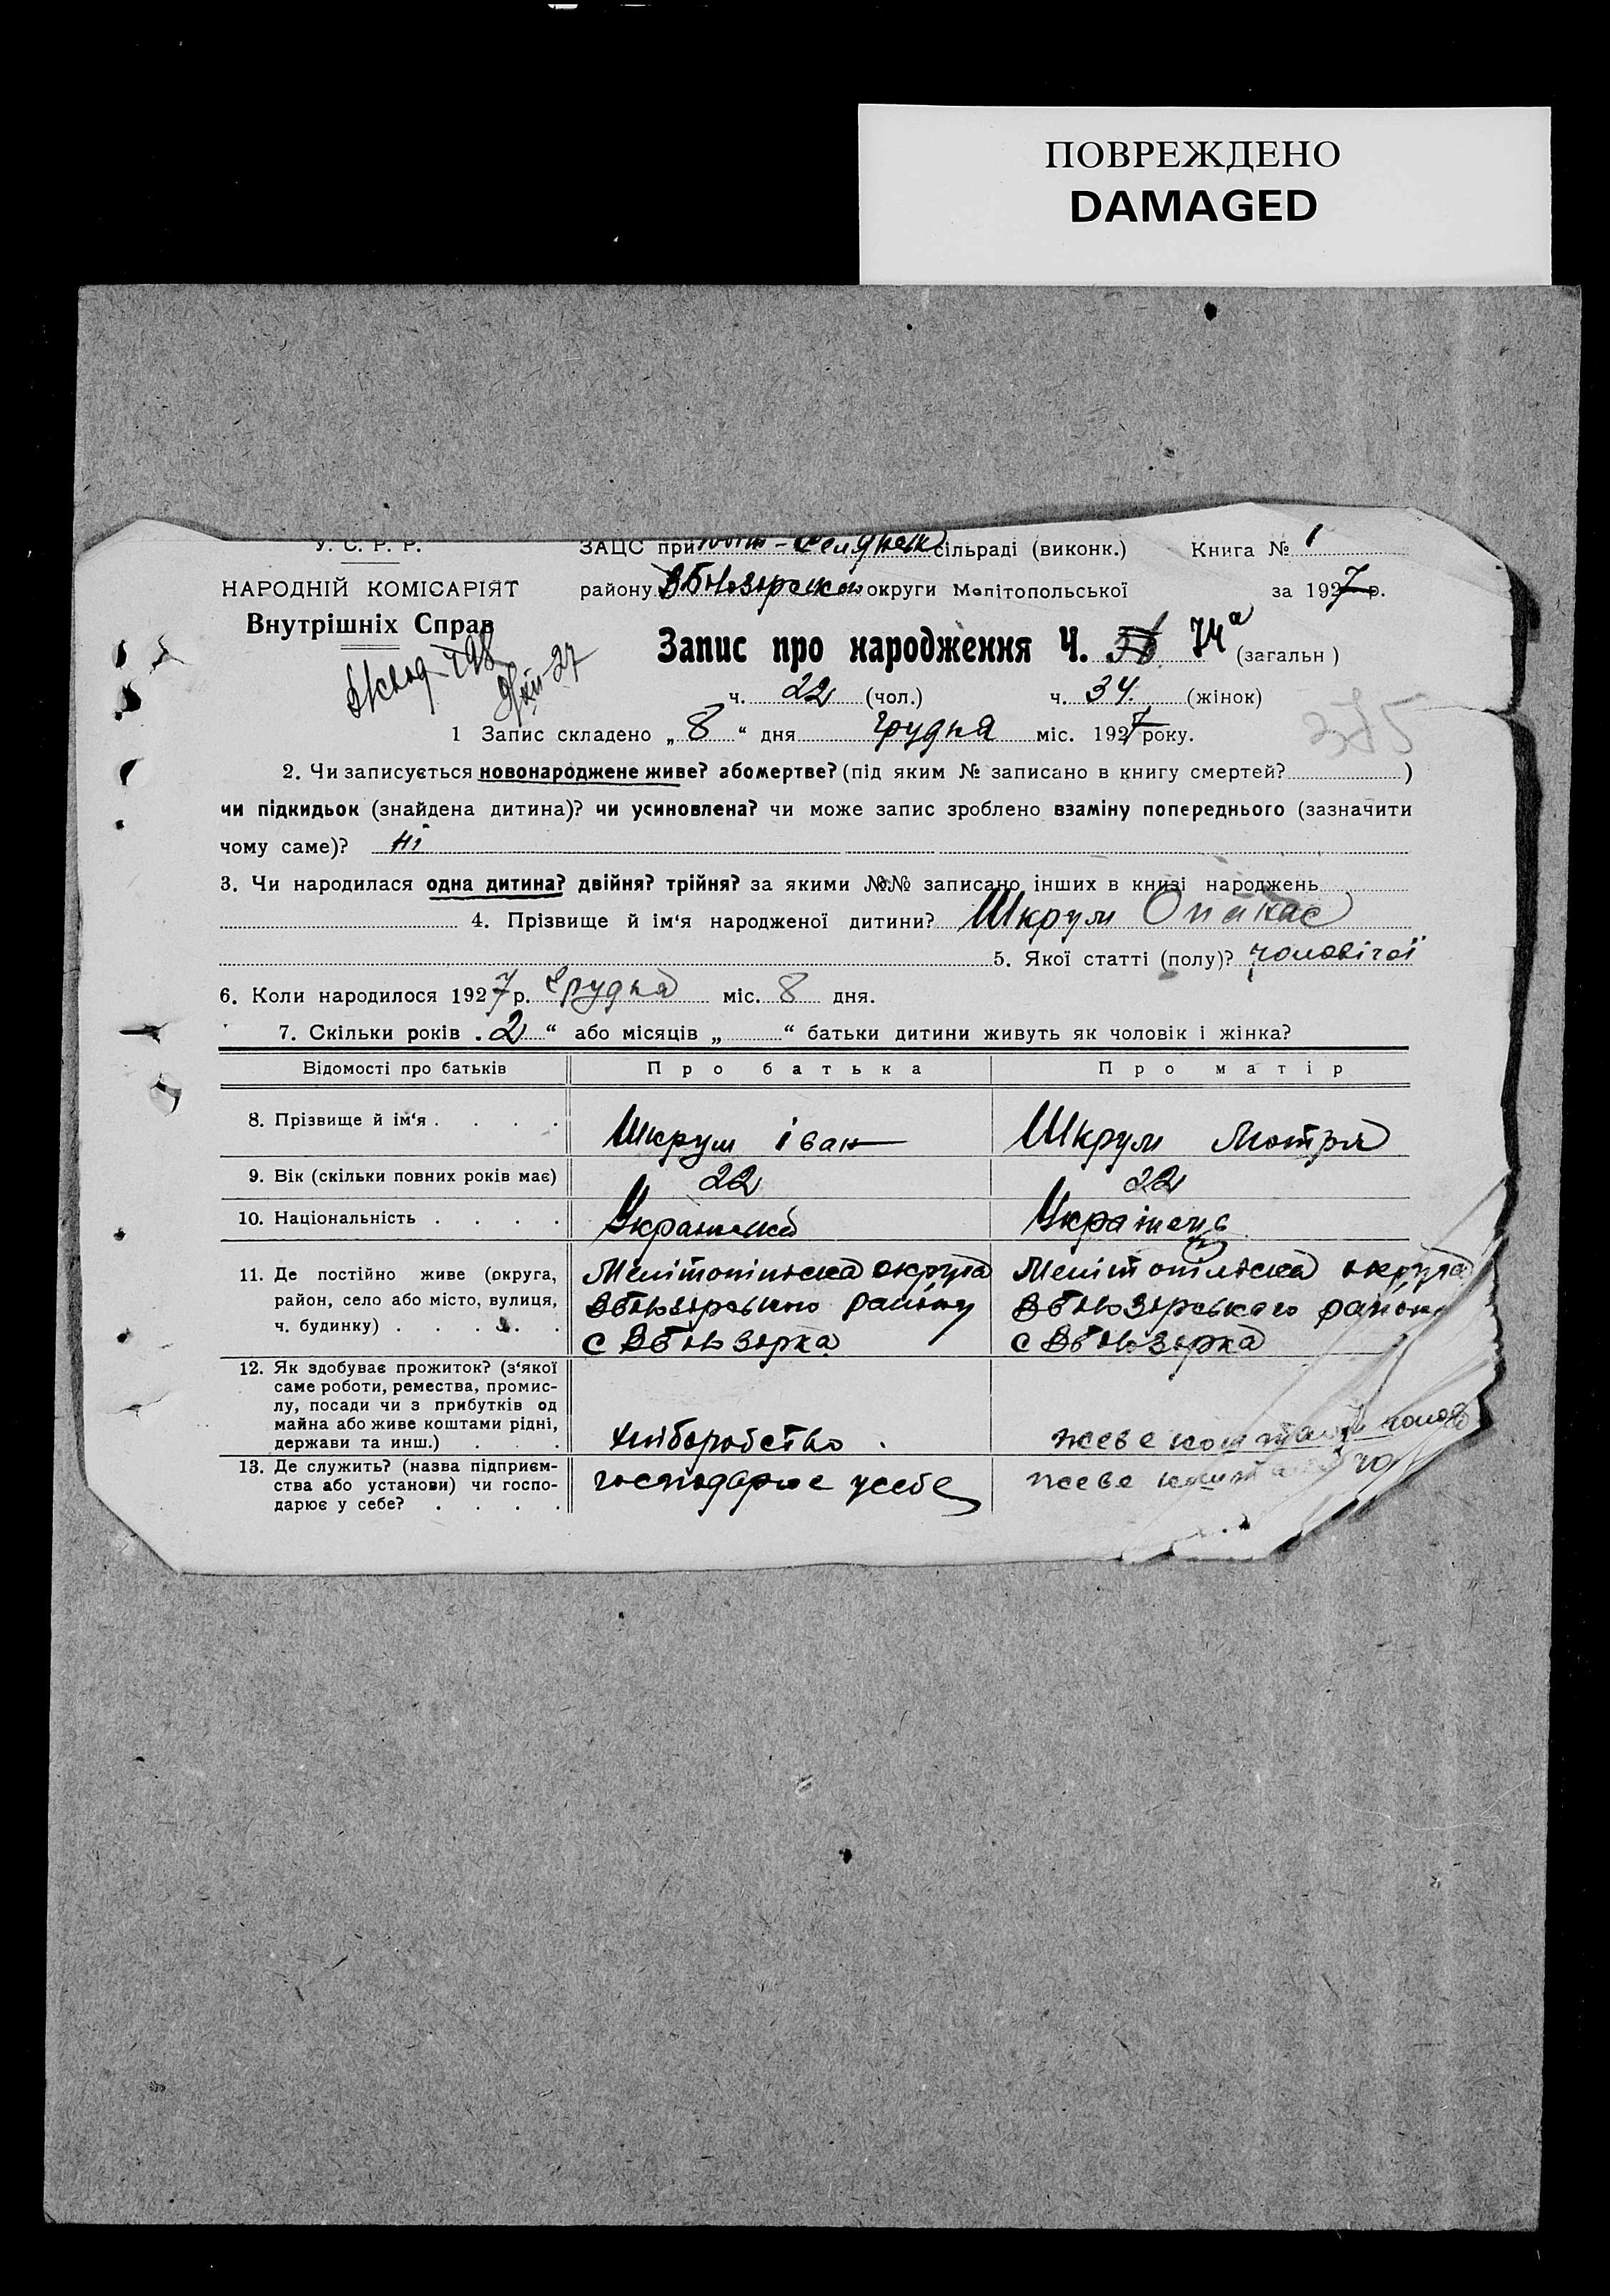 ПОВРЕЖДЕНО
DAMAGED
У. С. Р. Р.
НАРОДНІЙ КОМІСАРІЯТ
Внутрішніх Справ
ЗАЦС при сільраді (виконк.) Книга № 1
району округи Мелітопольської за 1927 р.
Запис про народження Ч. 74а (загальн)
ч. 22 (чол.) ч. 34. (жінок)
1 Запис складено „ 8 “ дня грудня міс. 1927 року.
375
2. Чи записується новонароджене живе? або мертве? (під яким № записано в книгу смертей? )
чи підкидьок (знайдена дитина)? чи усиновлена? чи може запис зроблено взаміну попереднього (зазначити
чому саме)? Ні
3. Чи народилася одна дитина? двійня? трійня? за якими №№ записано інших в книзі народжень
4. Прізвище й ім‘я народженої дитини? Шкрум Опанас
5. Якої статті (полу)? чоловічої
6. Коли народилося 1927 р. Грудня міс. 8 дня.
7. Скільки років „ 2 “ або місяців „ “ батьки дитини живуть як чоловік і жінка?
Відомості про батьків Про батька Про матір
8. Прізвище й ім‘я . . . . Шкрум Іван Шкрум Мотря
9. Вік (скільки повних років має) 22 22
10. Національність . . . . Українець
11. Де постійно живе (округа,
район, село або місто, вулиця,
ч. будинку) . . . . .
Мелітопільска округа Мелітопілска округа
району району
с с
12. Як здобуває прожиток? (з‘якої
саме роботи, ремества, промис-
лу, посади чи з прибутків од
майна або живе коштами рідні,
держави та инш.) . . .
хліборобство. живе коштами
13. Де служить? (назва підприєм-
ства або установи) чи госпо-
дарює у себе? . . . .
господарює усебе живе